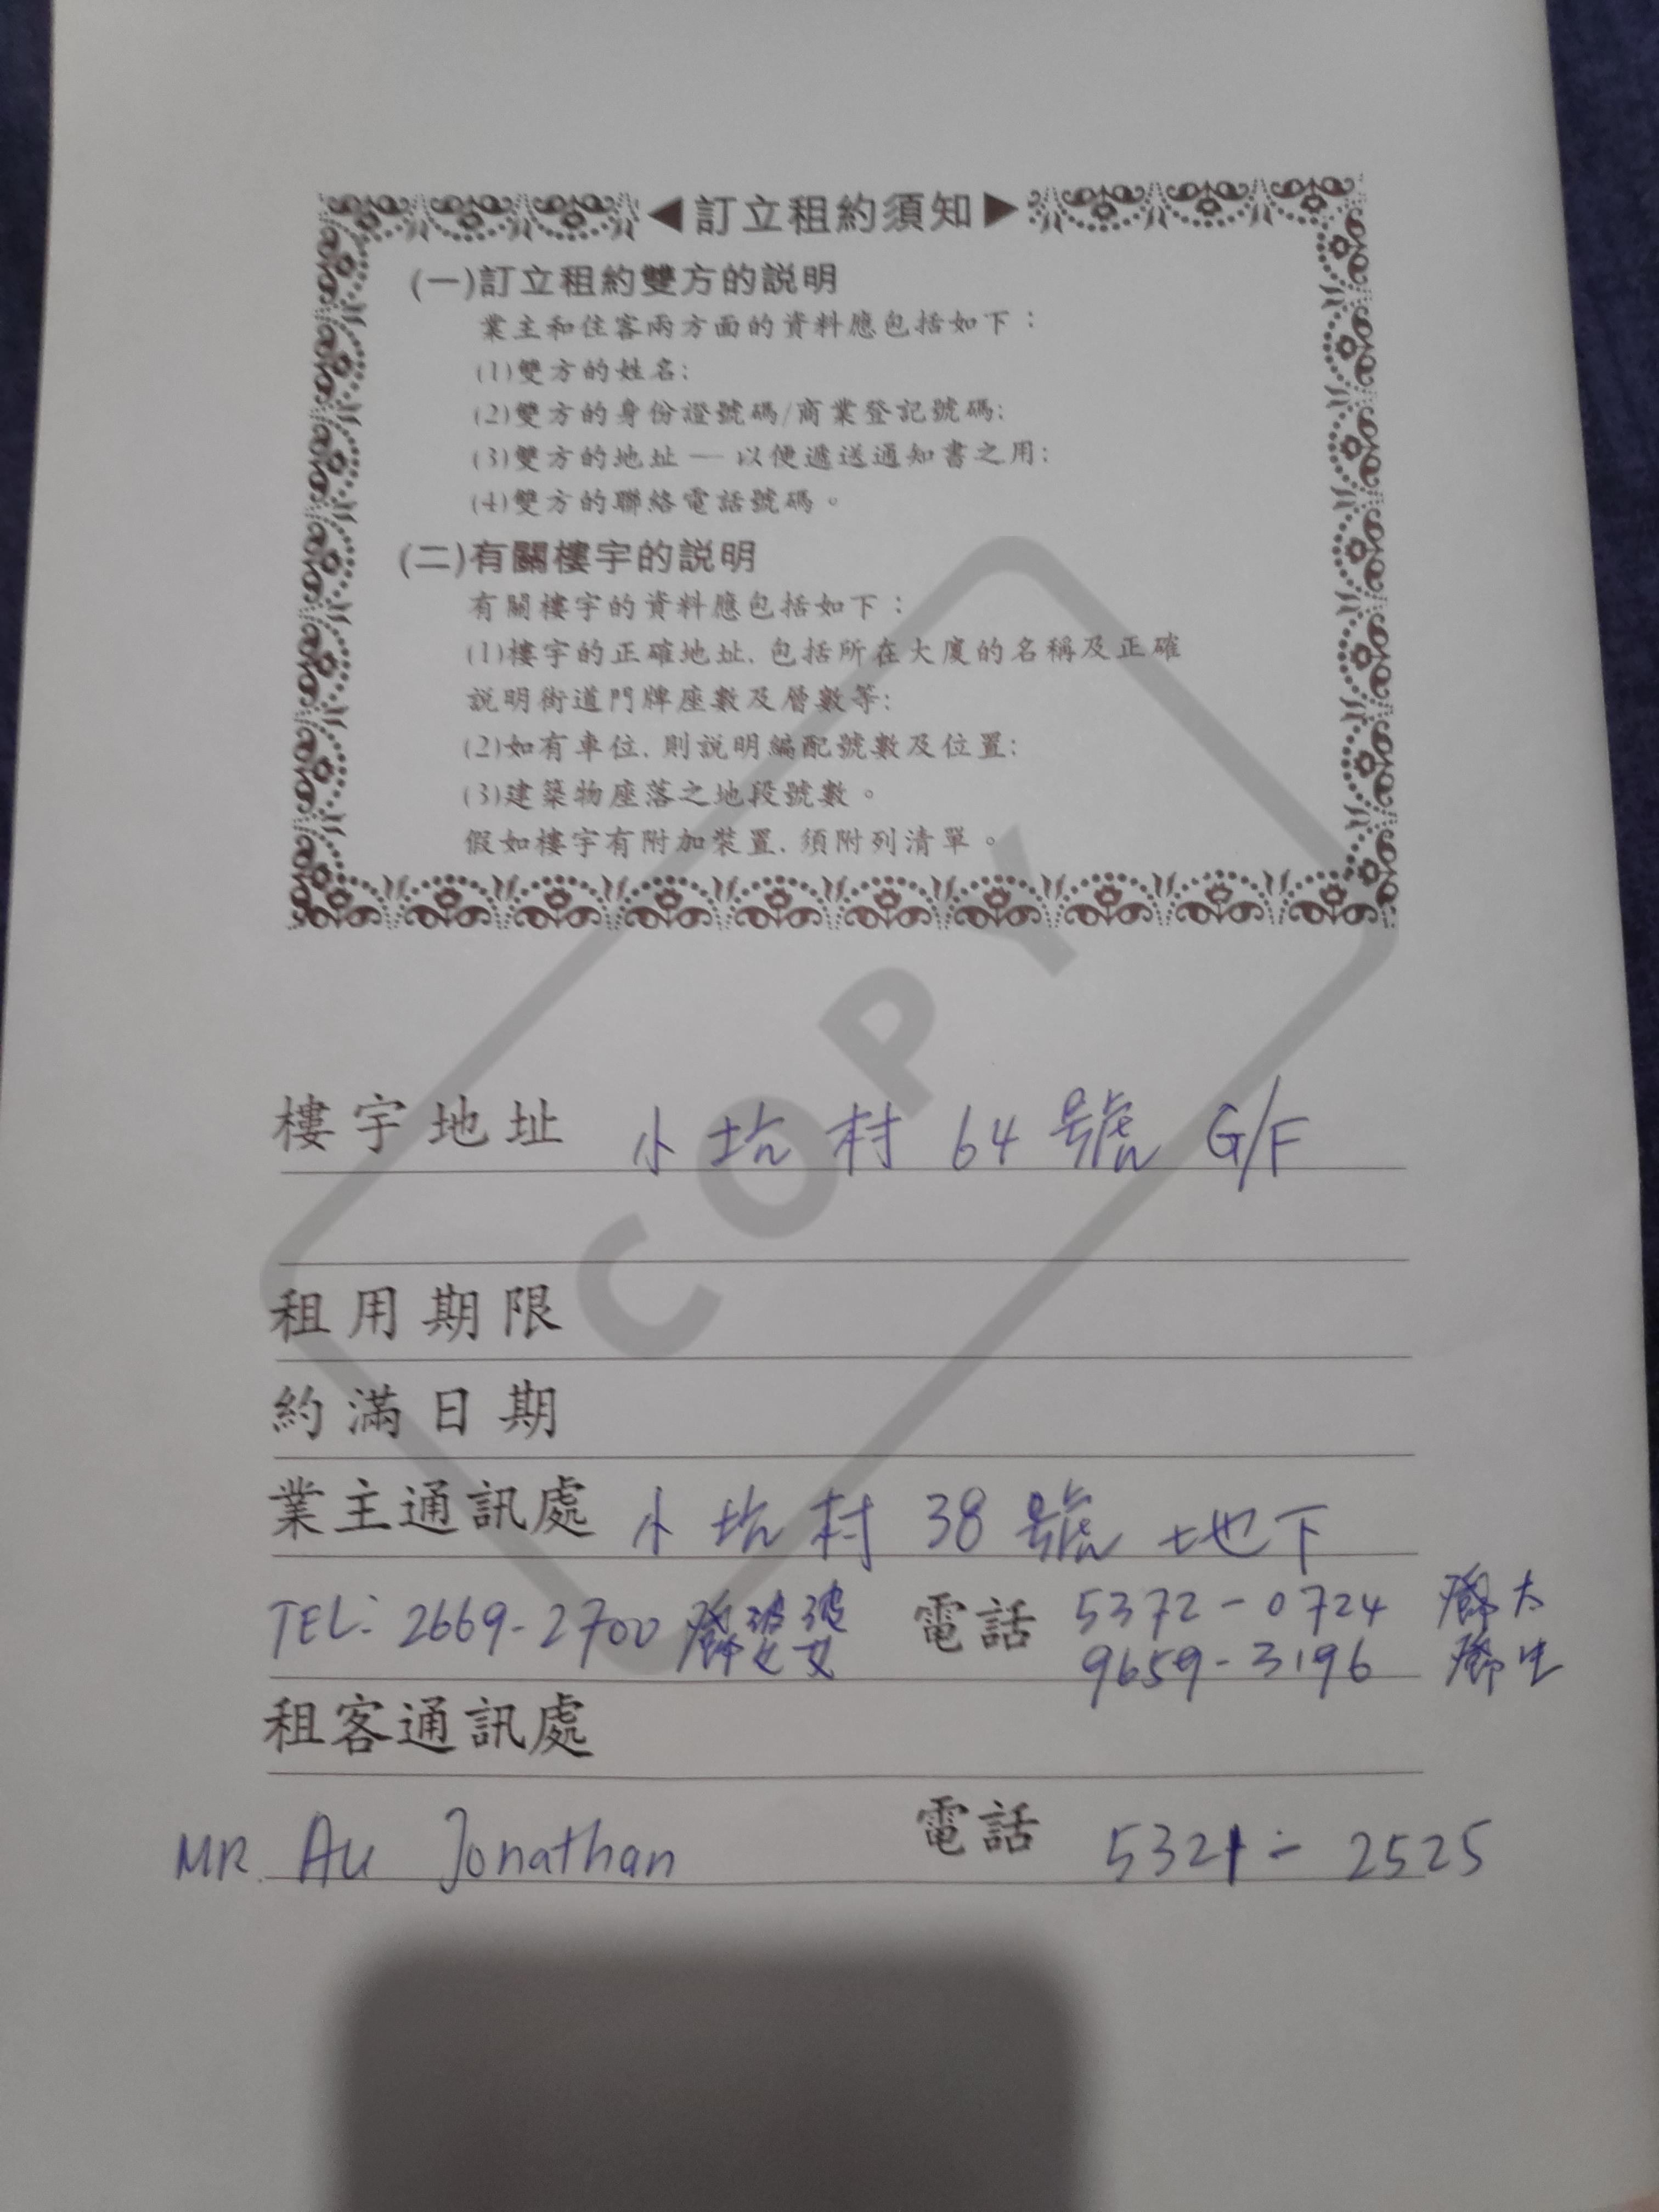 ◀訂立租約須知▶
(一)訂立租約雙方的説明
業主和住客兩方面的資料應包括如下：
(1)雙方的姓名;
(2)雙方的身份證號碼/商業登記號碼;
(3)雙方的地址 — 以便遞送通知書之用;
(4)雙方的聯絡電話號碼。
(二)有關樓宇的説明
有關樓宇的資料應包括如下：
(1)樓宇的正確地址, 包括所在大廈的名稱及正確
説明街道門牌座數及層數等;
(2)如有車位, 則説明編配號數及位置;
(3)建築物座落之地段號數。
假如樓宇有附加裝置, 須附列清單。
COPY
樓宇地址 小坑村 64 號 G/F
租用期限
約滿日期
業主通訊處 小坑村 38 號 地下
TEL: 2669-2700 鄧婆婆 電話 5372-0724 鄧太
9659-3196 鄧生
租客通訊處
MR. Au Jonathan 電話 5321-2525